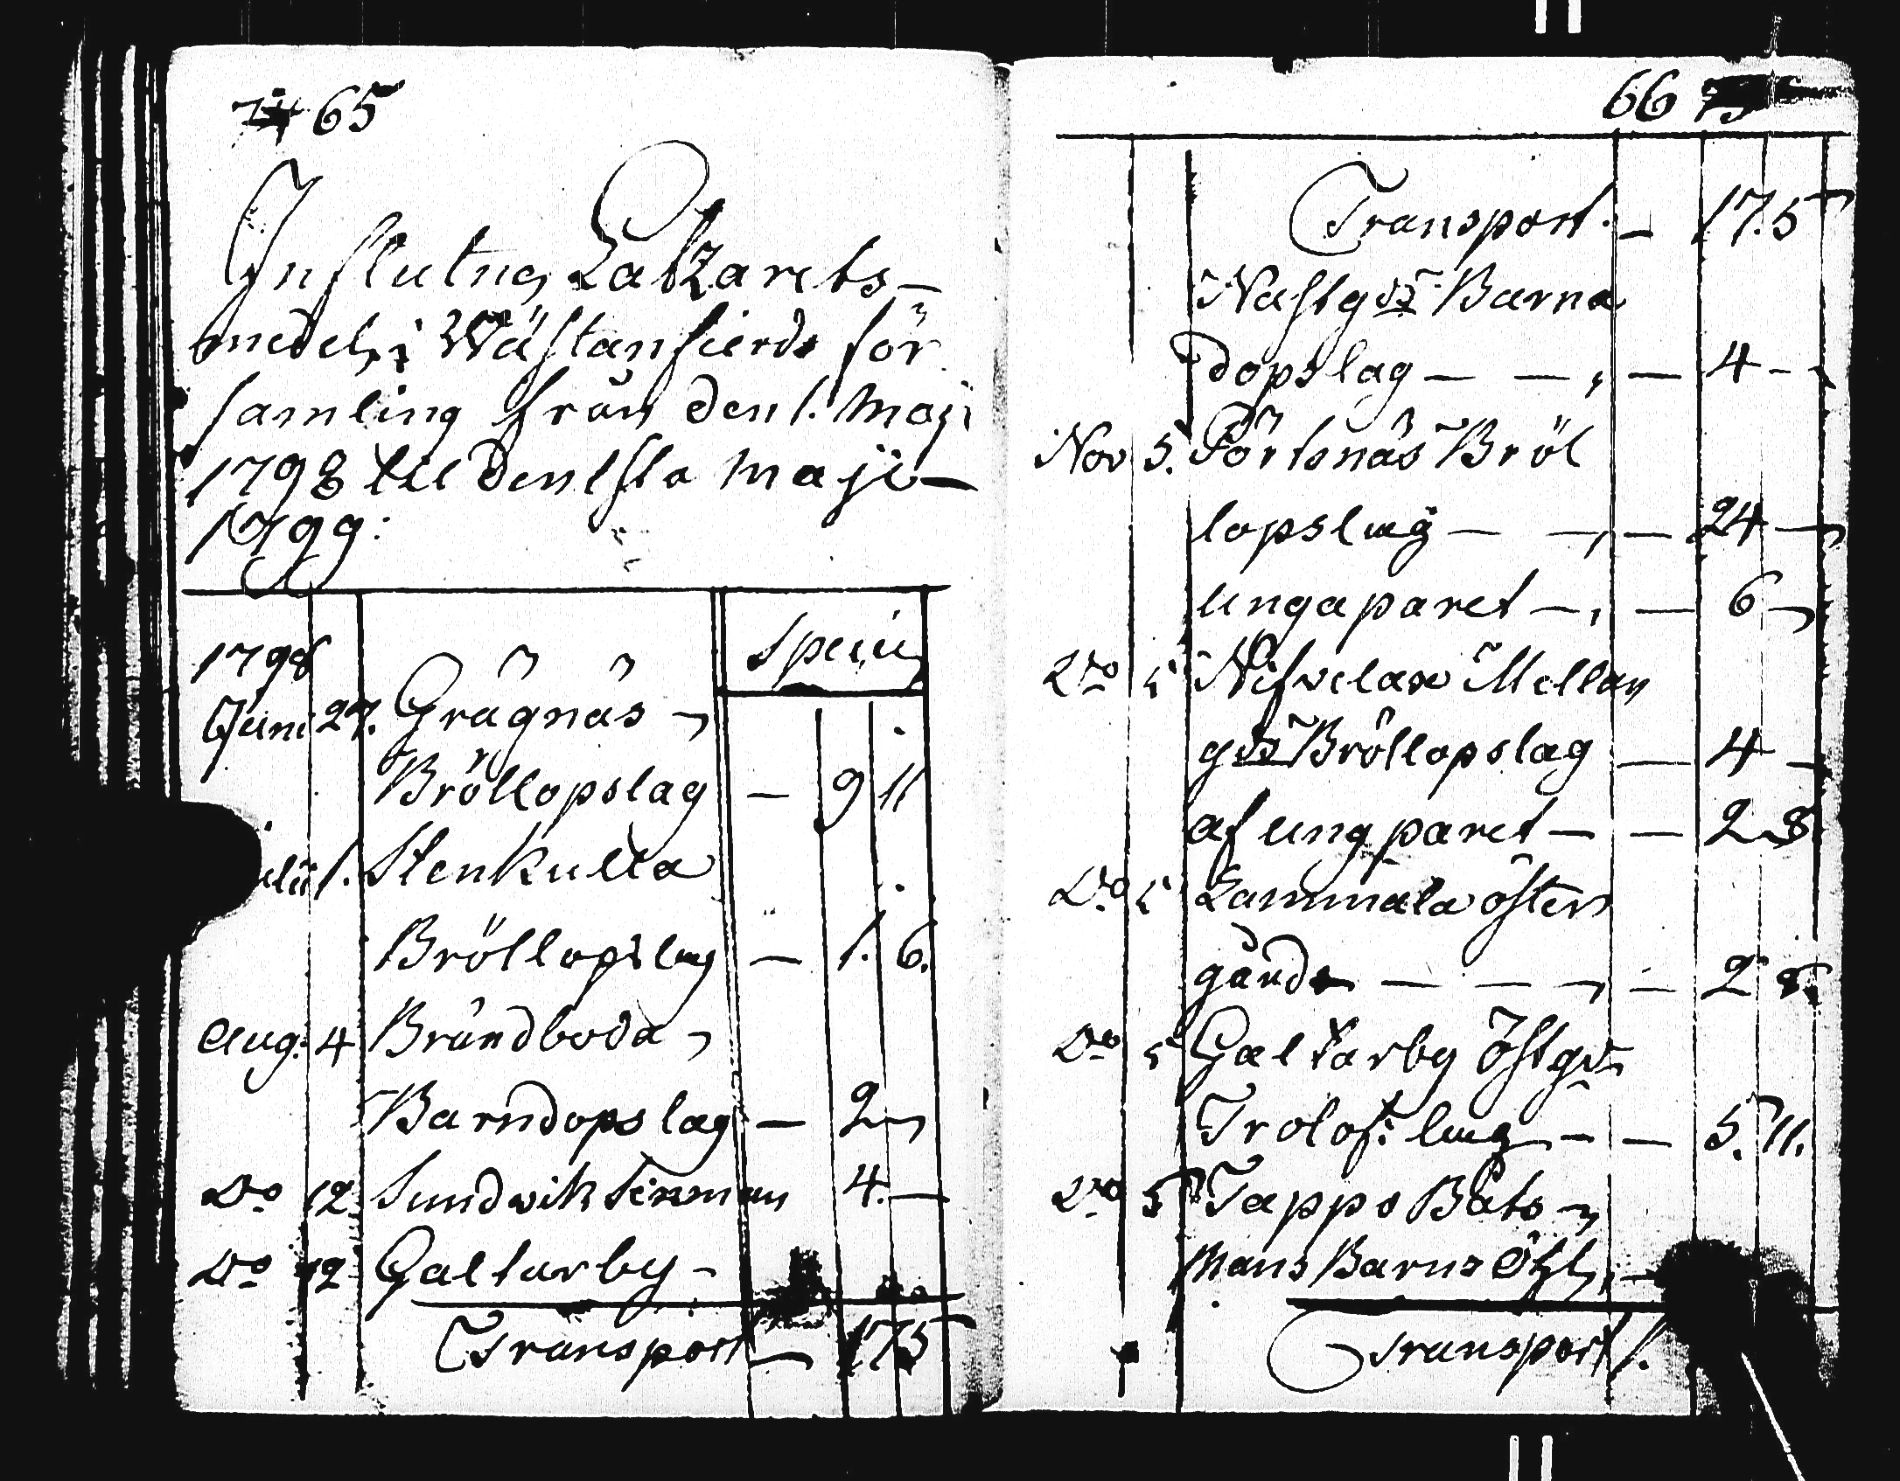 65
Influtne Latzarets-
medel i Wästanfierds för
samling från den 1. Maji
1798 til den 1sta Maji -
1799:
1798 Specie
Juni 27. Grågnäs -
Bröllopslag - 9 11
1. Stenkulla
Bröllopslag - 1. 6.
Aug: 4 Brändboda -
Barndopslag - 2 -
Do 12 Sundvik 4. -
Do 12 Galtarby -
Transport - 17 5
66
Transport. - 17. 5
Nästgds Barna
dopslag - - - 4 - -
Nov 5. Pörtsnäs Bröl
lopslag - - - 24 -
unga paret - - 6 -
Do 5 Nifvelax Mellan
gds Bröllopslag - 4 -
af ung paret - - 2 8.
Do 5 Lammala öster
gårds - - - - 2 8.
Do 5 Galtarby Östgds
Trolof: lag - - 5. 11.
Do 5 Tappo Båts -
mans Barns -
Transport 1.